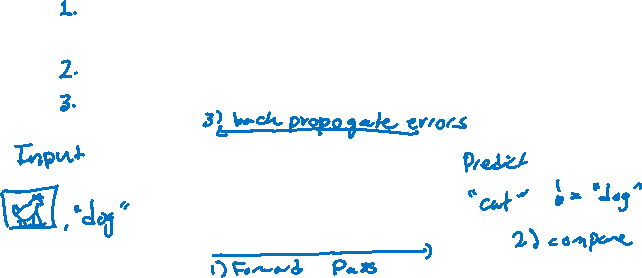 1.
2.
3.
3) back propogate errors
Input
Predict
, "dog"
"cat" != "dog"
2) compare
1) Forward Pass